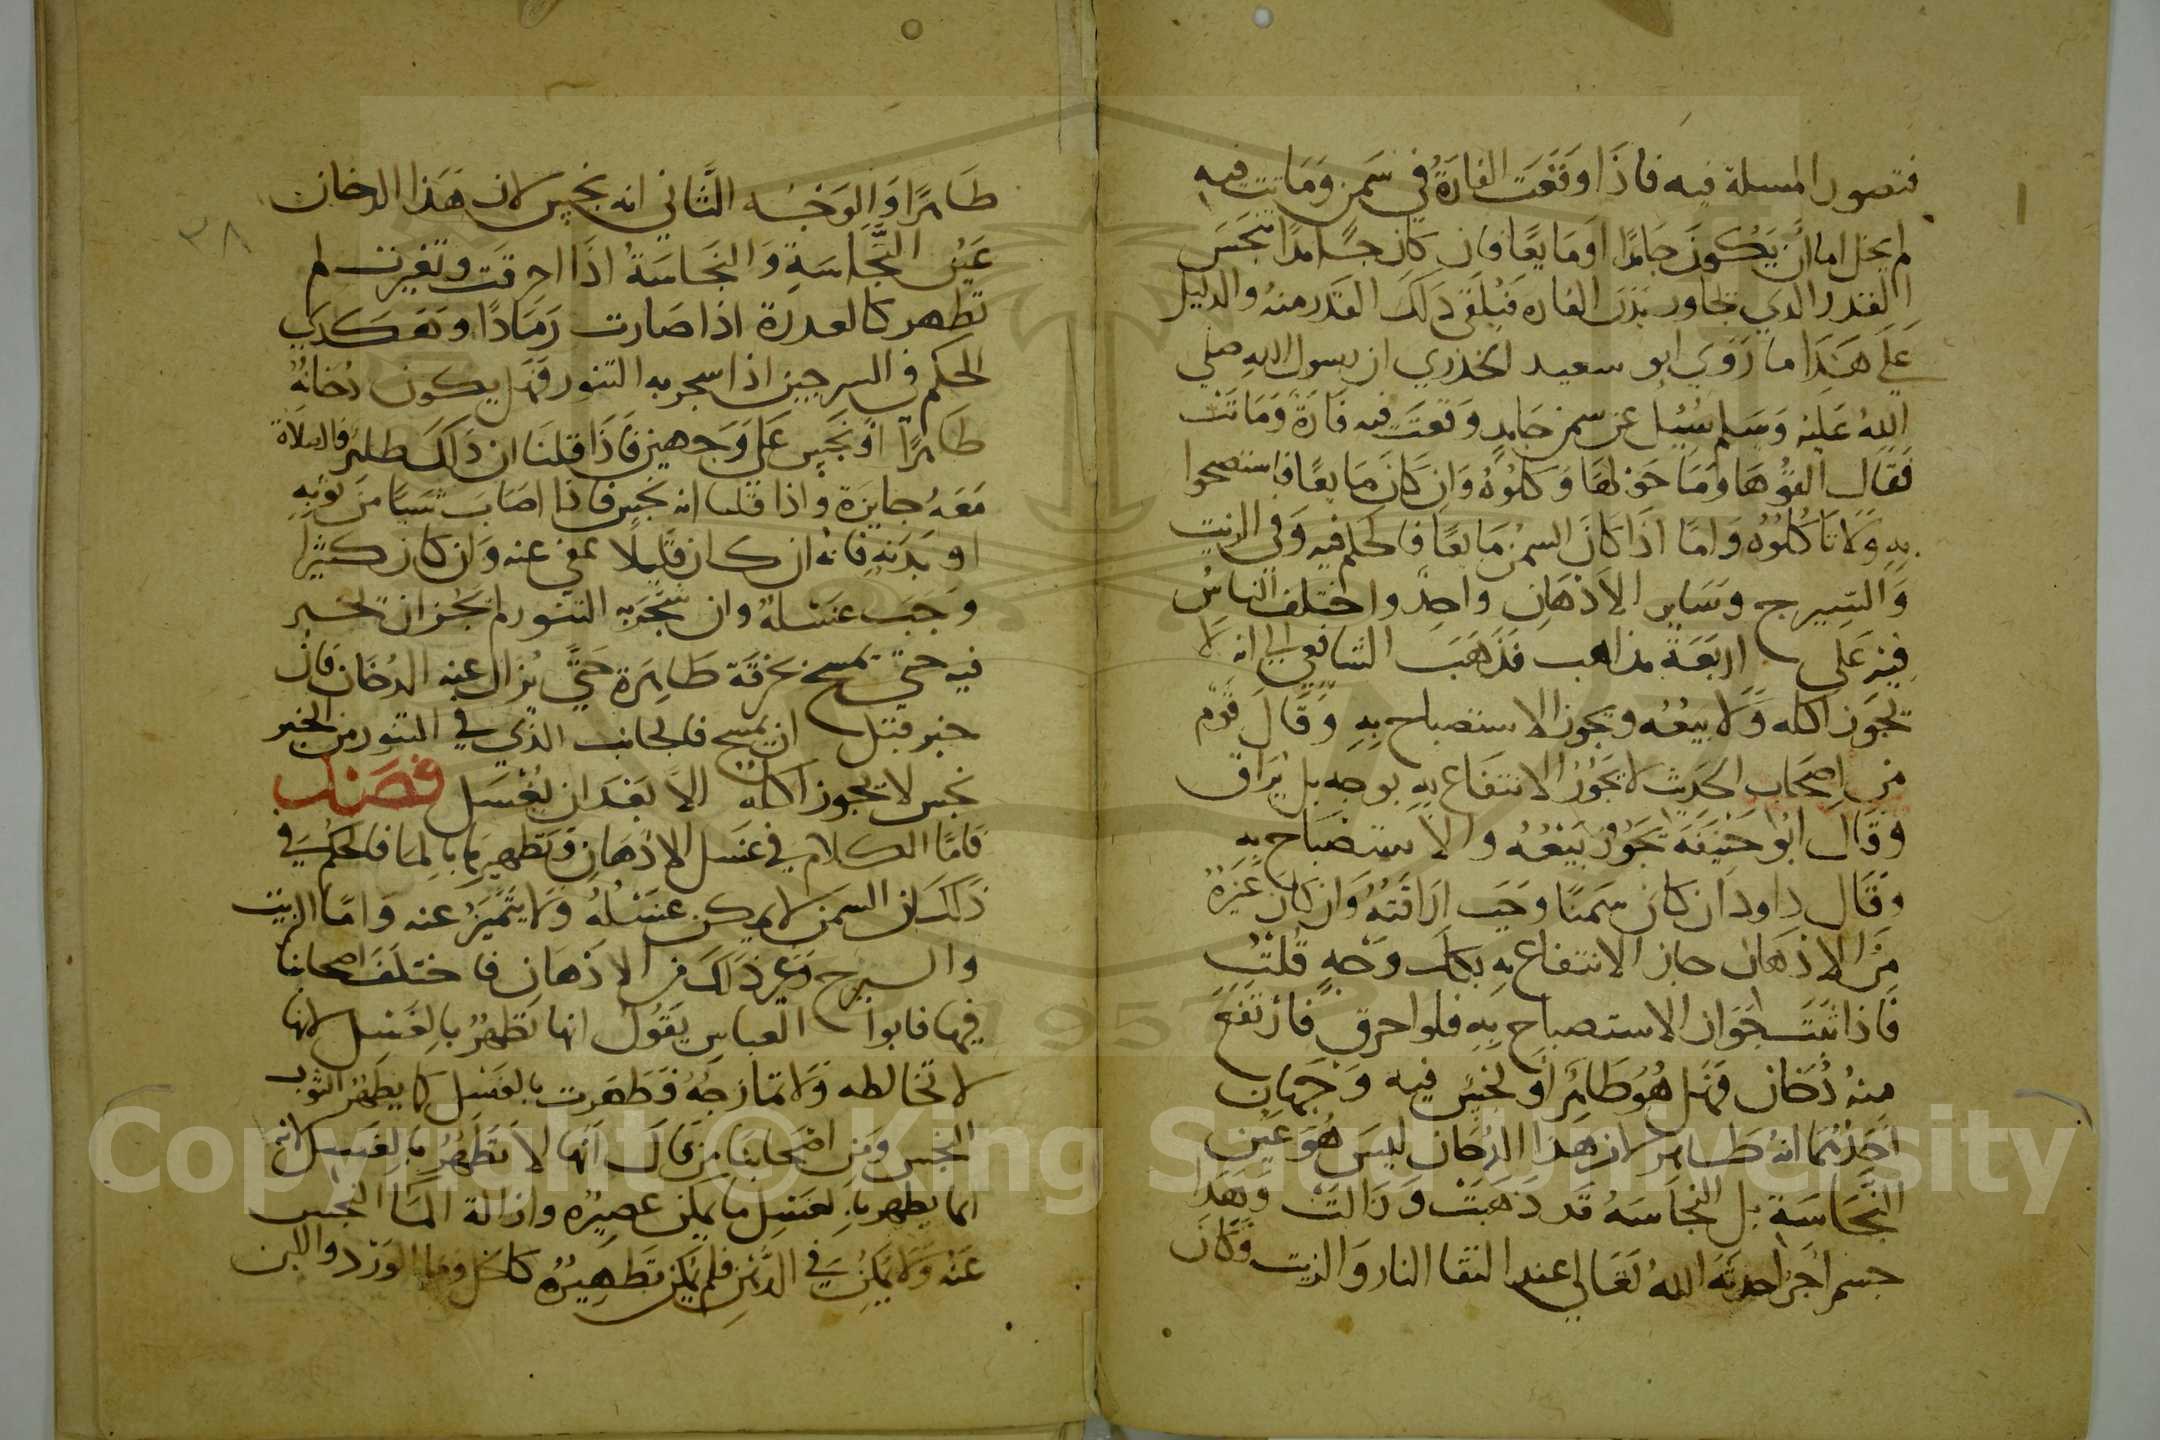 فتصور المسلة فيه فاذا وقعت الفارة في سمن وماتت فيه
لم يخل اما ان يكون جامدا او مايعا فان كان جامدا تنجس
القدر الذي جاور بدن الفاره فيلقى ذلك القدر منه والدليل
على هذا ما روي ابو سعيد الخدري ان رسول الله صلى
الله عليه وسلم سئيل عن سمن جامد وقعت فيه فارة وماتت
فقال القوها وما حولها وكلوه وان كان مايعا فاستصبحوا
به ولا تاكلوه واما اذا كان السمن مايعا فالحكم فيه وفي الزيت
والشيرج وساير الاذهان واحد واختلف الناس
فيه على اربعة مذاهب فذهب الشافعي الى انه لا
يجوز اكله ولا بيعه ويجوز الاستصباح به وقال قوم
من اصحاب الحديث لا يجوز الانتفاع به بوجه بل يراق
وقال ابو حنيفه يجوز بيعه والاستصباح به
وقال داود ان كان سمنا وجب اراقته وان كان غيره
من الاذهان جاز الانتفاع به بكل وجه قلت
فاذا ثبت جواز الاستصباح به فلو احرق فارتفع
منه دخان فهل هو طاهر او نجس فيه وجهان
احدهما انه طاهر لان هذا الدخان ليس هو عين
النجاسة بل النجاسه قد ذهبت وزالت وهذا
جسم اخر احدثه الله تعالى عند التقا النار والزيت وكان
٣٨
طاهرا والوجه الثاني انه نجس لان هذا الدخان
عين النجاسة والنجاسة اذا احرقت وتغيرت لم
تطهر كالعذرة اذا صارت رمادا وهكذي
الحكم في السرجين اذا سجر به التنور فهل يكون دخانه
طاهرا او نجس على وجهين فاذا قلنا ان ذلك طاهر فالصلاة
معه جايزة واذا قلنا انه نجس فاذا اصاب شيا من ثوبه
او بدنه فانه ان كان قليلا عفي عنه وان كان كثيرا
وجب غسله وان سجر به التنور لم يجز ان يخبز
فيه حتى يمسح بخرقة طاهرة حتى يزال عنه الدخان فان
خبز قبل ان يمسح فالجانب الذي في التنور من الخبز
نجس لا يجوز اكله الا بعد ان يغسل فصل
فاما الكلام في غسل الاذهان وتطهيرها بالما فالحكم في
ذلك ان السمن لا يمكن غسله ولا يتميز عنه واما الزيت
والسيرج وغير ذلك من الاذهان فاختلف اصحابنا
فيها فابوا العباس يقول انها تطهر بالغسل لانها
لا تخالطه ولا تمازجه فطهرت بالغسل كما يطهر الثوب
النجس ومن اصحابنا من قال انها لا تطهر بالغسل لانه
انما يطهر بالغسل ما يمكن عصيره وازالة الما النجس
عنه ولا يمكن في الدهن فلم يمكن تطهيره كالخل وما الورد واللبن
Copyright © King Saud University
1957